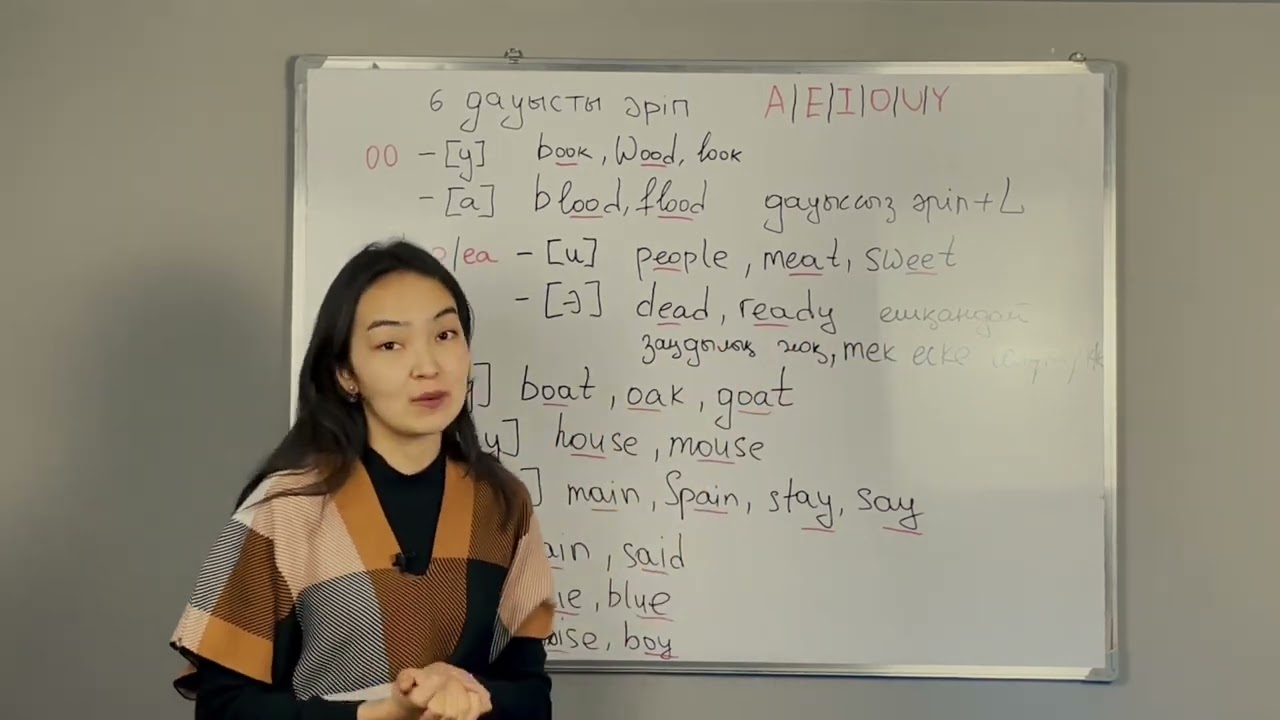 6 дауысты әріп A|E|I|O|U|Y
OO - [у] book, Wood, look
- [а] blood, flood дауыссыз әріп + L
/ea - [и] people, meat, sweet
- [э] dead, ready ешқандай
заңдылық жоқ, тек еске
] boat, oak, goat
у] house, mouse
] main, Spain, stay, say
ain, said
ue, blue
oise, boy